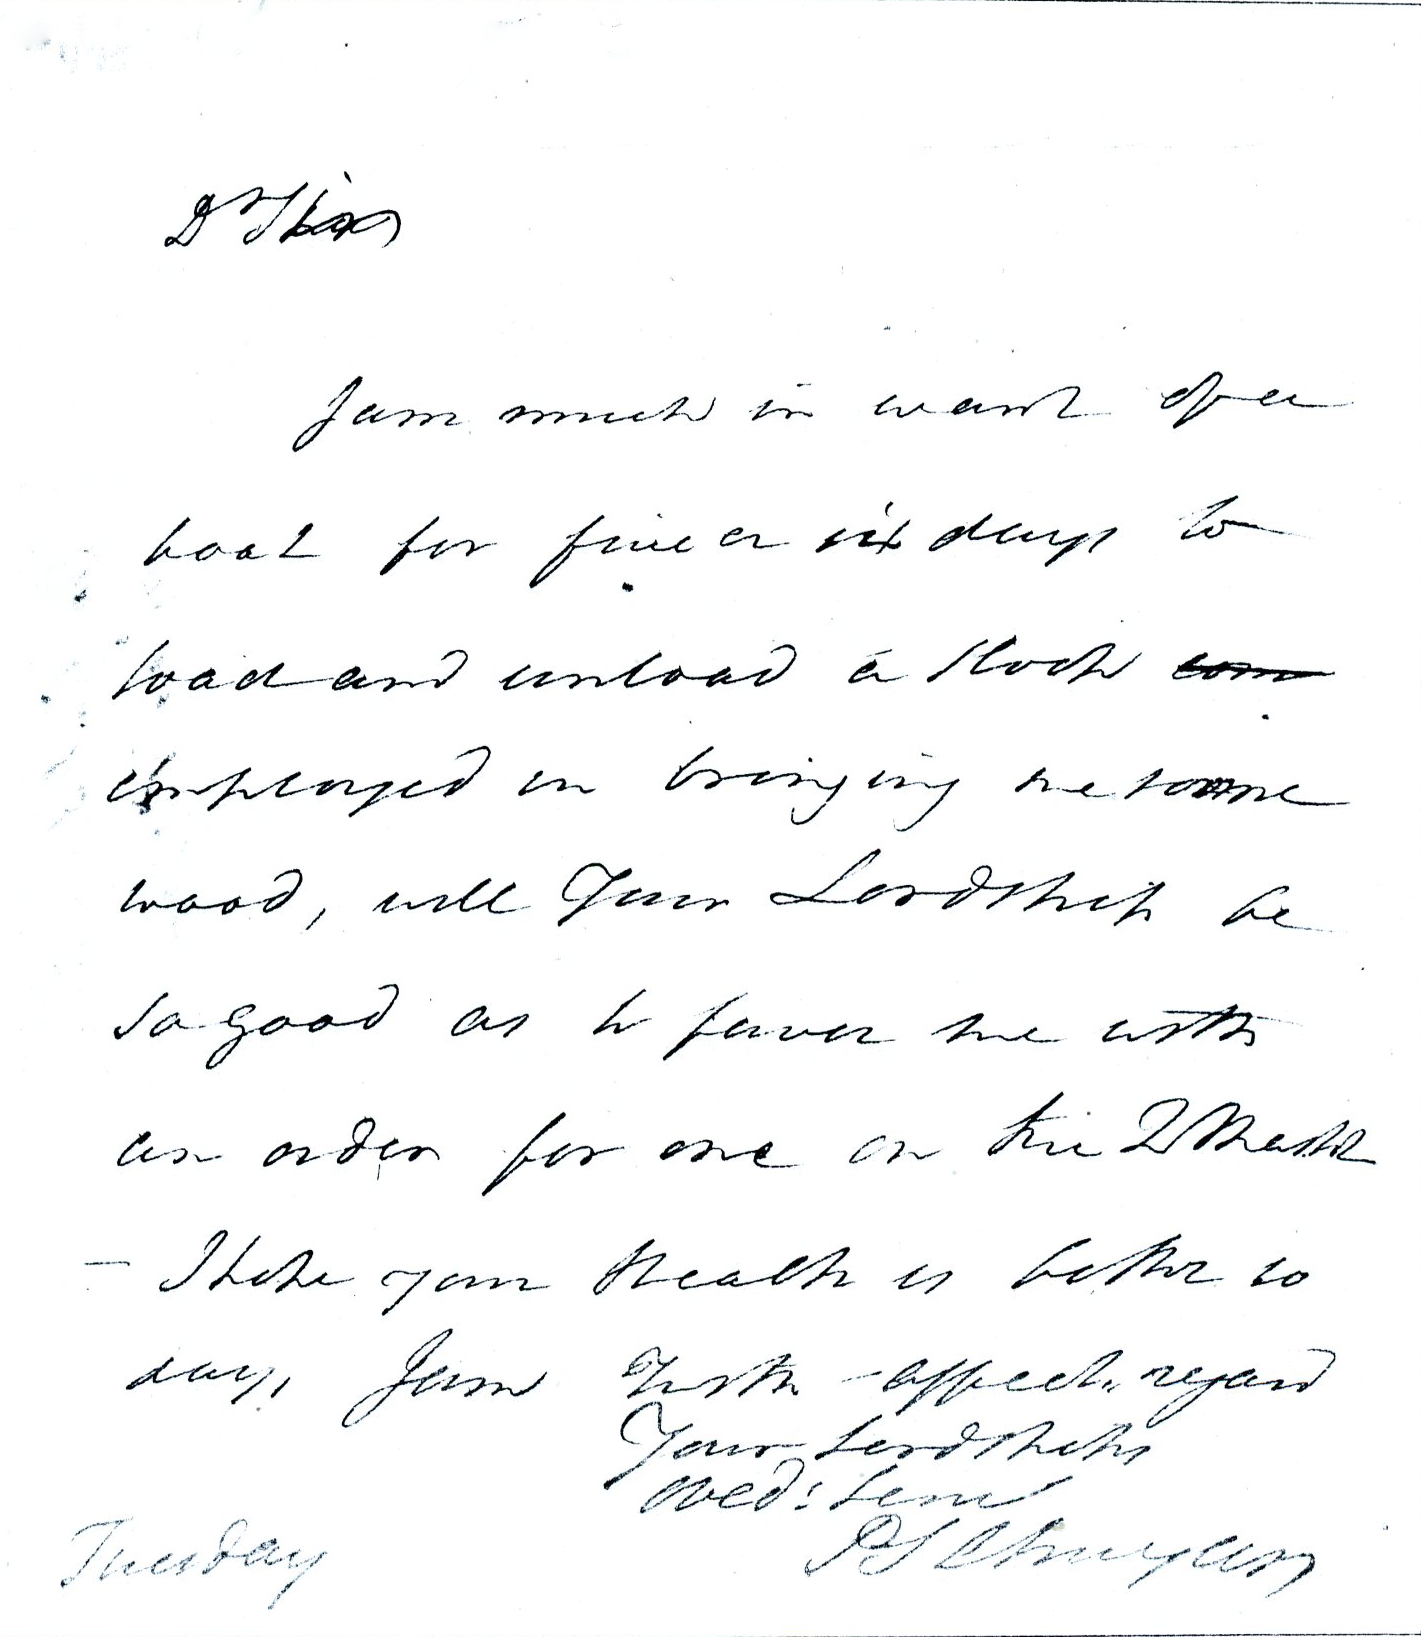 Dr Sir
I am much in want of a
boat for five or six days to
load and unload a Sloop com
employed in bringing me some
wood, will Your Lordship be
so good as to favor me with
an order for one on the Q Master
– I hope your Health is better to
day, I am With affect. regard
Your Lordships
Obed: Serv
P Schuyler
Tuesday